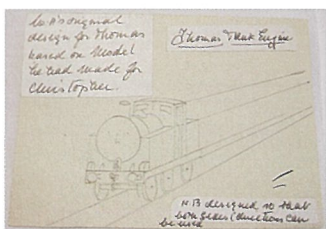 original
design for Thomas
based on Model
he had made for
Christopher.
Thomas Tank Engine
NB designed so that
both sides/directions can
be used